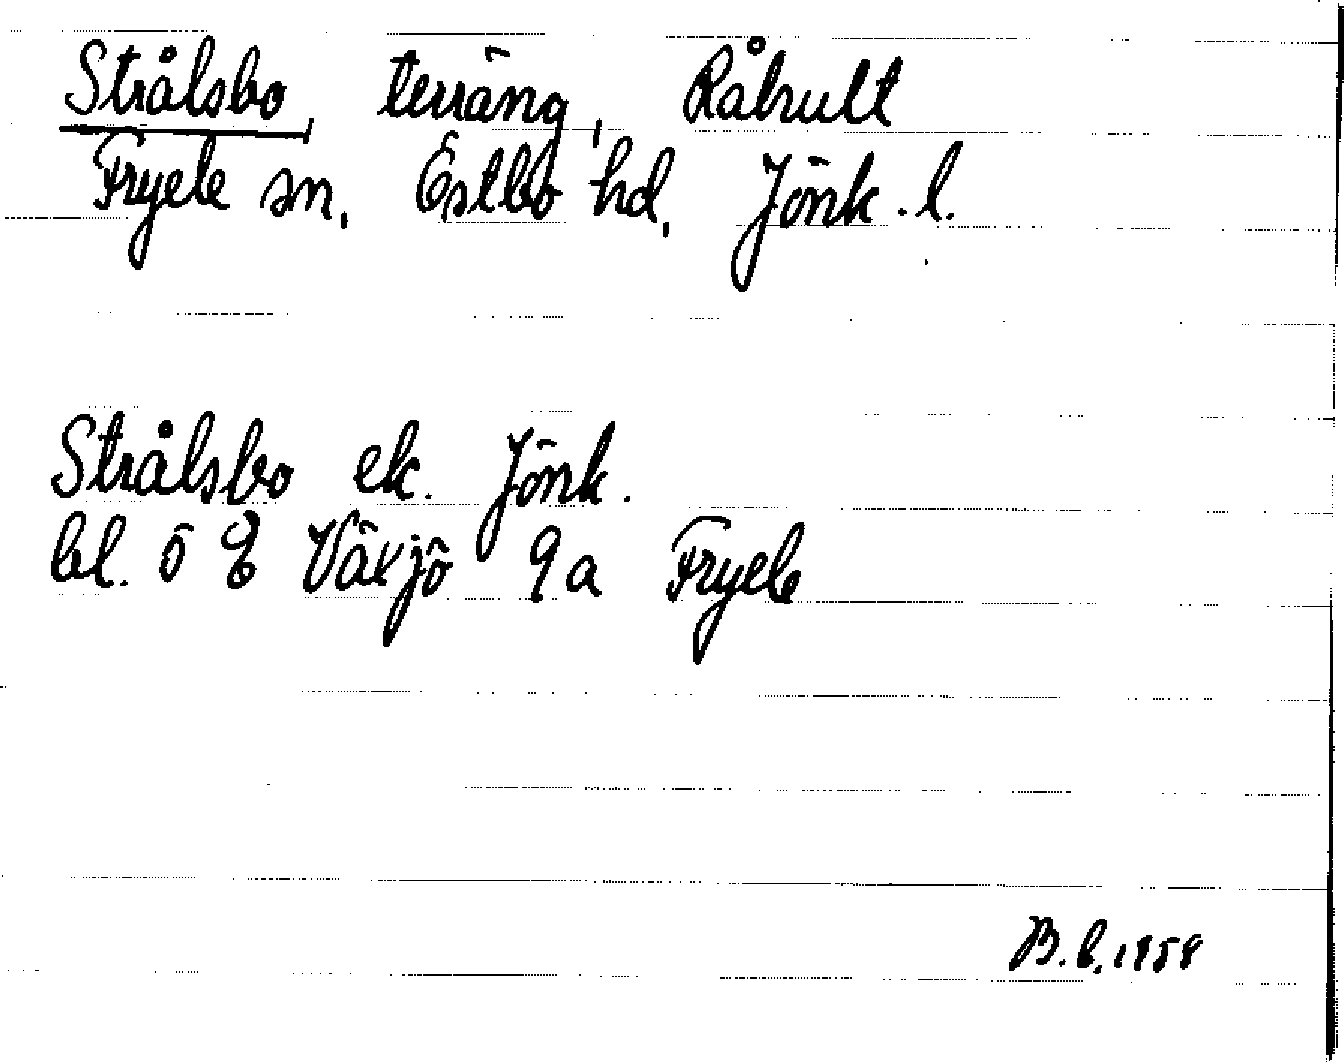 Strålsbo, terräng, Råhult
Fryele sn, Östbo hd, Jönk. l.
Strålsbo ek. Jönk.
bl. ö 8 Växjö 9a Fryele
B.E. 1958